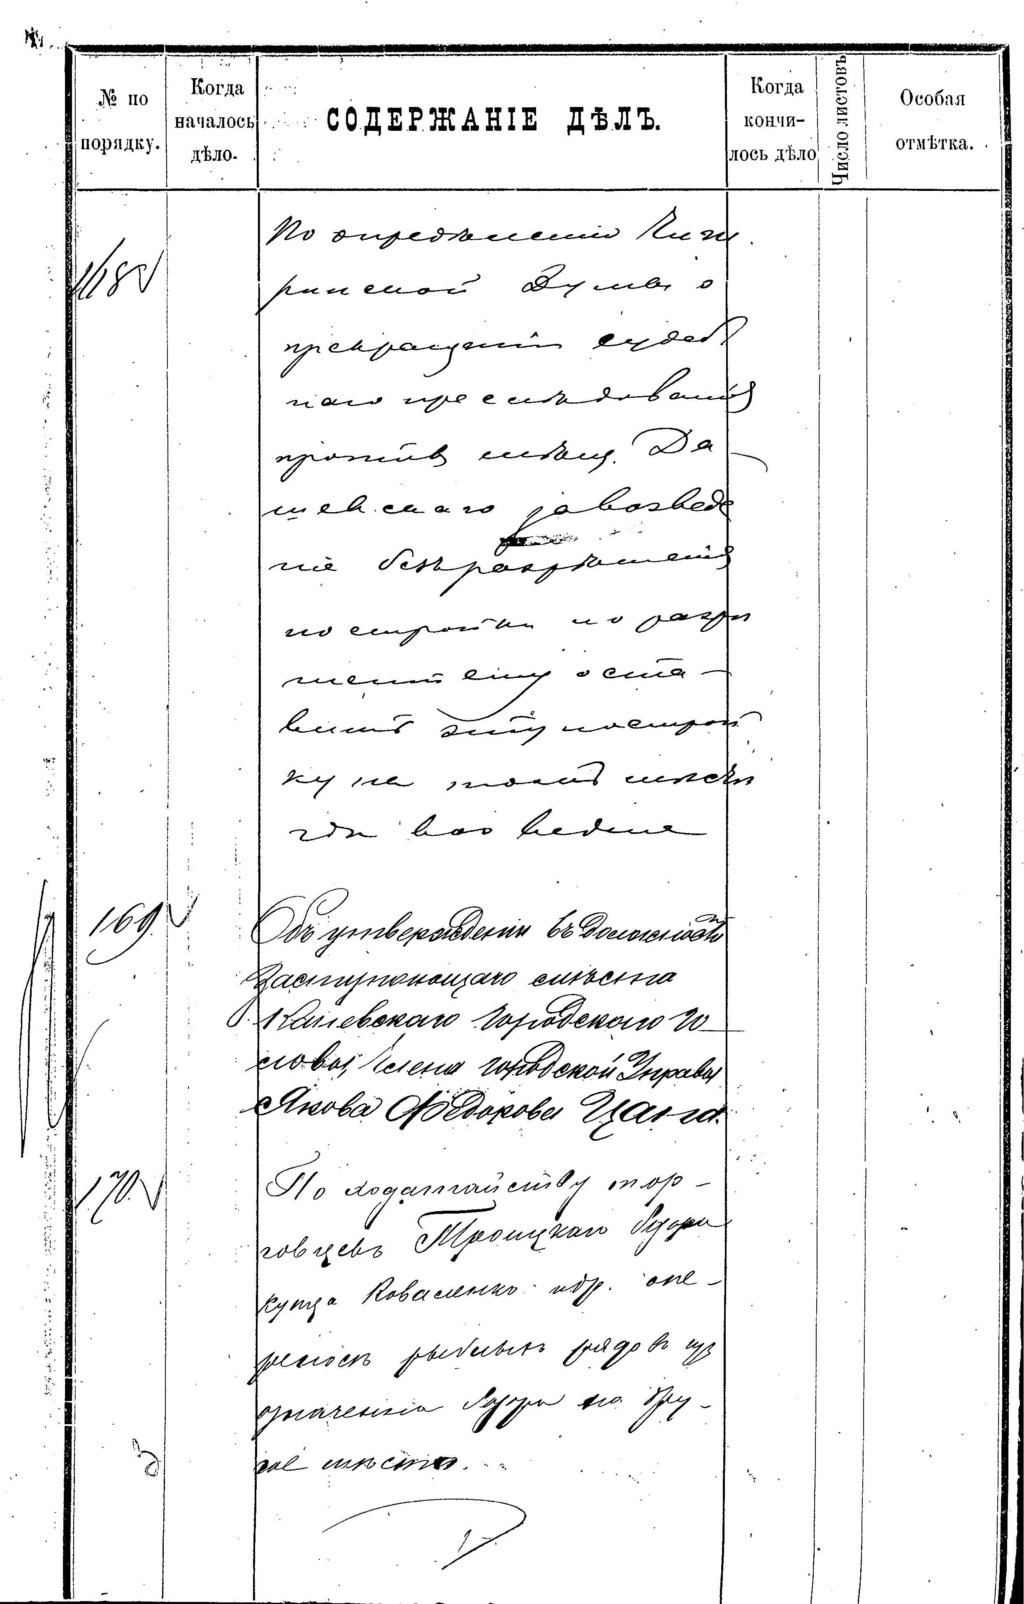 № по порядку.
Когда началось дѣло.
СОДЕРЖАНІЕ ДѢЛЪ.
Когда кончи-лось дѣло
Число листовъ
Особая отмѣтка.
168
По опредѣленію Чиги
ринской Думы о
прекращеніи судеб
наго преслѣдованія
противъ мѣщ. Да-
шевскаго за возведе
ніе безъ разрѣшенія
постройки и о разрѣ
шеніи ему оста-
вить эту построй
ку на томъ мѣстѣ
гдѣ возведена
169.
Объ утвержденіи въ должности
Заступающаго мѣсто
Каневскаго Городского Го-
ловы, Члена Городской Управы
Якова Федорова
170.
По ходатайству тор-
говцевъ Троицкаго базара
купца Коваленко и др. о пе-
реносѣ рыбныхъ рядовъ изъ
означеннаго базара на дру-
гое мѣсто.